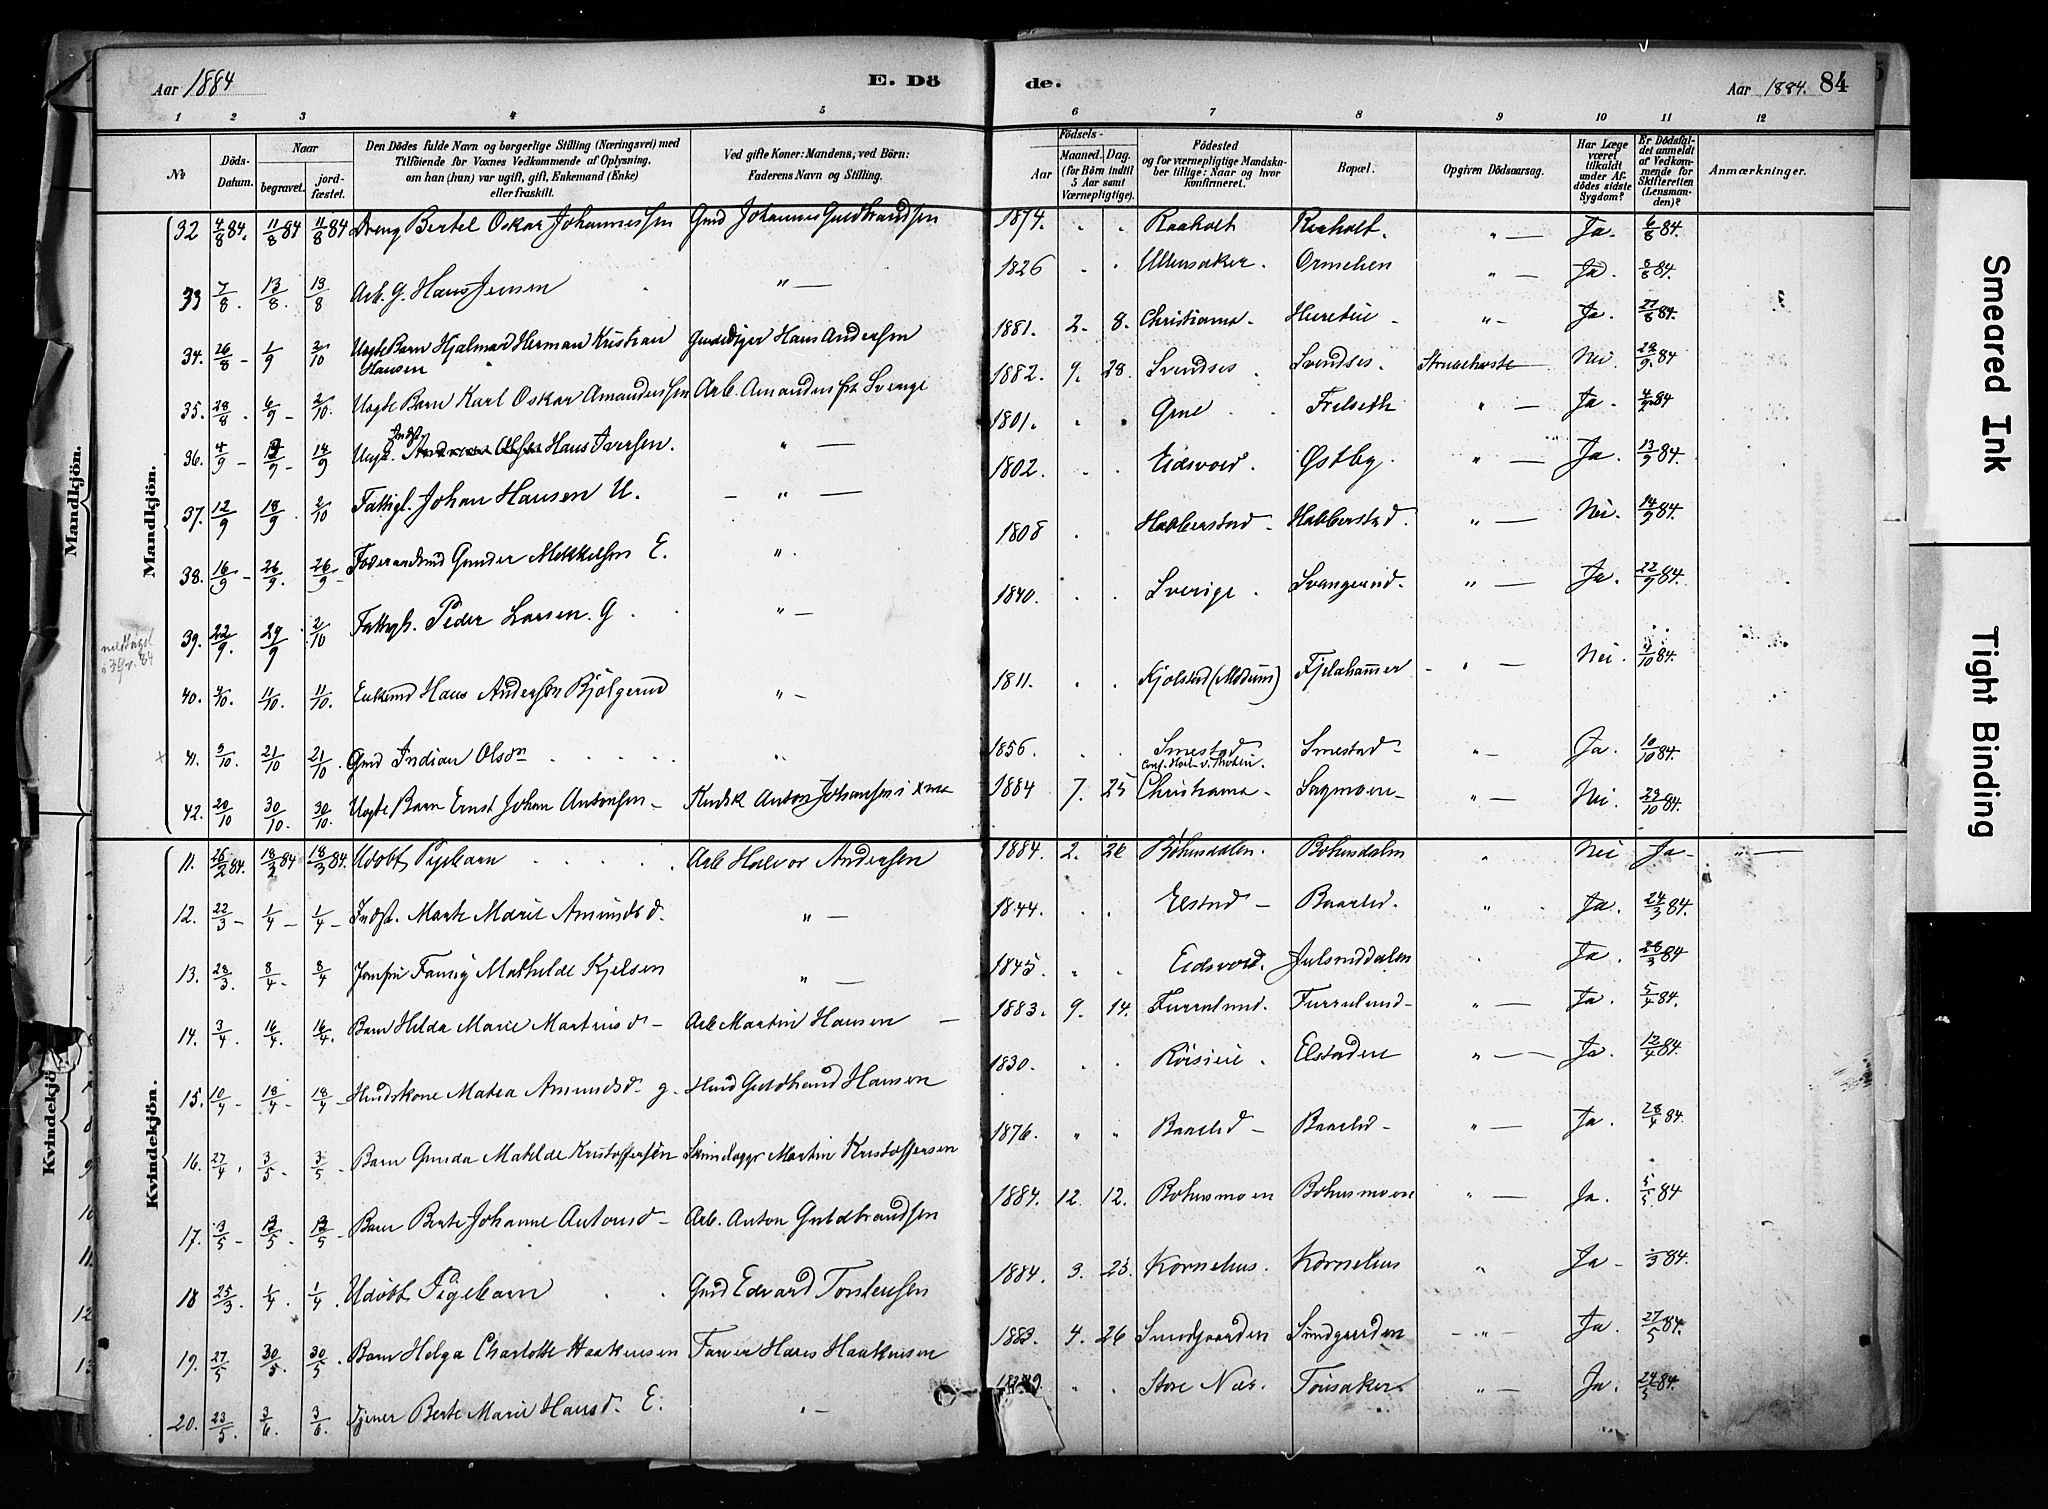 Aar 1884 E. Dö de. Aar 1884. 84
1 2 3 4 5 6 7 8 9 10 11 12
No Döds-Datum. Naar begravet. jord-fæstet.
Den Dödes fulde Navn og borgerlige Stilling (Næringsvei) med Tilföiende for Voxnes Vedkommende af Oplysning, om han (hun) var ugift, gift, Enkemand (Enke) eller fraskilt.
Ved gifte Koner: Mandens, ved Börn: Faderens Navn og Stilling.
Födsels- Aar Maaned. Dag. (for Börn indtil 5 Aar samt Værnepligtige).
Födested og for værnepligtige Mandska-ber tillige: Naar og hvor konfirmeret.
Bopæl.
Opgiven Dödsaarsag.
Har Læge været tilkaldt under Af-dödes sidste Sygdom?
Er Dödsfal-det anmeldt af Vedkom-mende for Skifteretten (Lensman-den)?
Anmærkninger.
Mandkjön.
Mandkjön.
32 4/8 84. 11/8 84 11/8 84 Dreng Bertel Oskar Johannessen Gmd Johannes Guldbrandsen 1874. Raaholt Raaholt. " — Ja. 6/8 84.
33 7/8 13/8. 13/8 Arb. G. Hans Jensen " — 1826 Ullensaker. Ormelien " — Ja. 8/8 84.
34. 26/8 - 1/9 2/10 Uægte Barn Hjalmar Herman Kristian Hansen Hans Andersen 1881. 2. 8. Christiania " - Ja. 27/8 84.
35. 28/8. 6/9 - 2/10. Uægte Barn Karl Oskar Amandussen Arb. Amandus fra Sverige 1882. 9. 28. Svendses. Svendses. Strubehoste Nei 29/9. 84
36. 4/9 - 14/9 Hans Iversen. " — 1801. Frelseth " — Ja. 84
37. 12/9 18/9. 2/10 Fattigl. Johan Hansen U. - " — 1802. Eidsvold. Østby. " — Ja. 13/9 84.
38. 16/9 - 26/9. 26/9 - Gunder Mikkelsen E. ". 1808 Habberstad. Habberstad. " — Nei. 14/9 84.
39. 22/9. 29/9 2/10 Fattigl. Peder Larsen. G. " — 1840. Sverige. Svangerud. " — Ja. 22/9 84.
40. 11/10. 11/10. Enkemd Hans Andersen Bjølgerud " - 1811. Kjølstad (Modum) Fjelehammer - " — Nei. 84.
41. 5/10. 21/10 21/10. Gmd Indian Olsen 1856. Smestad Smestad - " - Ja. 10/10 84.
42. 20/10 30/10. 30/10. Uægte Barn Ernst Johan Antonsen - Kudsk Anton Johansen i Xnia 1884 7. 25 Christiania - Sagmoen - " - Nei. 23/10 84.
Kvindekjö
Kvindekjön.
11. 26/2 84. 18/3 84 18/3 84. Udøbt Pigebarn Arb Halvor Andersen 1884. 2. 26 Bøhnsdalen. Bøhnsdalen Nei Ja - " —
12. 22/3 - 1/4 - 1/4 - Indst. Marte Marie Amundsd. " — 1844. Elstad - Baarlid. " Ja. 24/3 84.
13. 28/3. 8/4 - 8/4 Jomfru Fanny Mathilde Kjelsen " — 1845 Eidsvold. Julsruddalen Ja. 28/3 84
14. 3/4. 16/4. 16/4. Barn Hilda Marie Martinsd - Arb Martin Hansen — 1883. 9. 14. Furrulund. Furrulund - " — Ja. 5/4 84.
15. 10/4 - 18/4 - 18/4 - Husdskone Matea Amundsd - g. Husd Guldbrand Hansen 1830. Röisiie. Elstadeie " — Ja. 12/4 84.
16. 27/4. 3/5. 3/5 - Barn Gunda Matilde Kristoffersen Martin Kristoffersen 1876. " " Baarlid - Baarlid - " — Ja. 28/4 84.
17. 3/5 - 12/5 - 12/5 - Barn Berte Johanne Antonsd - Arb. Anton Guldbrandsen 1884. 12. 12. Bøhnsmoen Bøhnsmoen " — Ja. 5/5. 84
18 25/3. 1/4. 1/4. Udøbt Pigebarn Gmd Edvard Torstensen 1884. 3. 25. Kornelius. Kornelius " Ja - /3 84.
19. 27/5 30/5. 30/5. Barn Helga Charlotte Haakensen Farver Hans Haakensen 1883. 4. 26 Sundgaarden Sundgaarden - " - Ja. 27/5 84.
20. 23/5. 3/6 3/6. Tjener Berte Marie Hansd. E. " - Store Nær. Tønsaker. " — Ja. 24/5 84.
Smeared Ink
Tight Binding